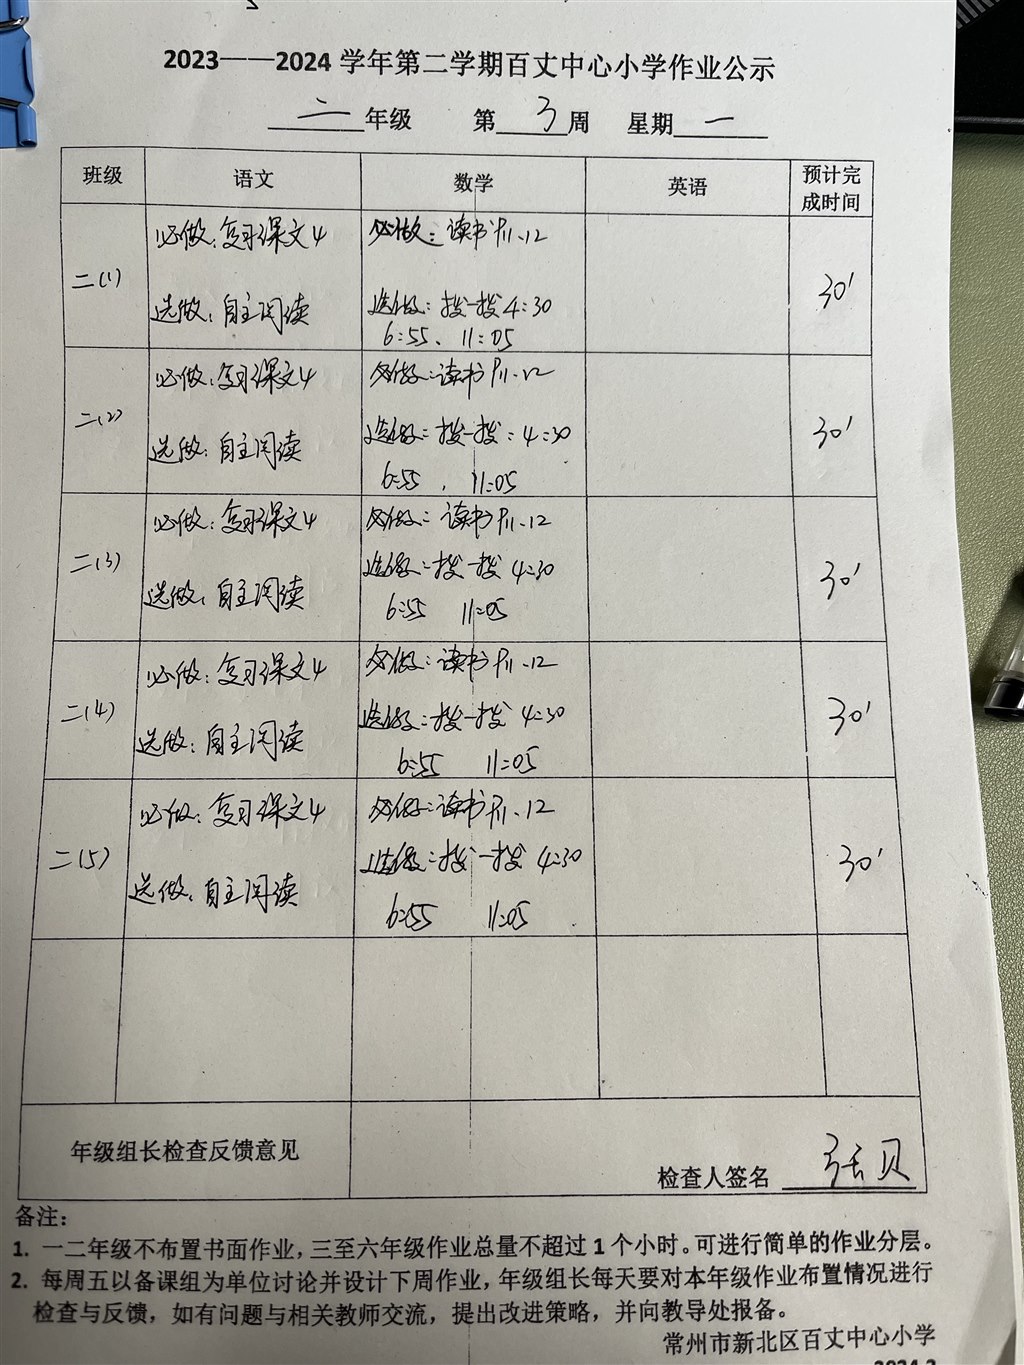 2023——2024 学年第二学期百丈中心小学作业公示
二 年级 第 3 周 星期 一
班级 语文 数学 英语 预计完成时间
二(1)
必做:复习课文4
选做:自主阅读
必做:读书P11、12
选做:拨一拨4:30
6:55、11:05
30'
二(2)
必做:复习课文4
选做:自主阅读
必做:读书P11、12
选做:拨一拨:4:30
6:55 , 11:05
30'
二(3)
必做:复习课文4
选做:自主阅读
必做:读书P11、12
选做:拨一拨 4:30
6:55 11:05
30'
二(4)
必做:复习课文4
选做:自主阅读
必做:读书P11、12
选做:拨一拨 4:30
6:55 11:05
30'
二(5)
必做:复习课文4
选做:自主阅读
必做:读书P11、12
选做:拨一拨 4:30
6:55 11:05
30'
年级组长检查反馈意见
检查人签名 张贝
备注:
1. 一二年级不布置书面作业,三至六年级作业总量不超过 1 个小时。可进行简单的作业分层。
2. 每周五以备课组为单位讨论并设计下周作业,年级组长每天要对本年级作业布置情况进行
检查与反馈,如有问题与相关教师交流,提出改进策略,并向教导处报备。
常州市新北区百丈中心小学
2024.2